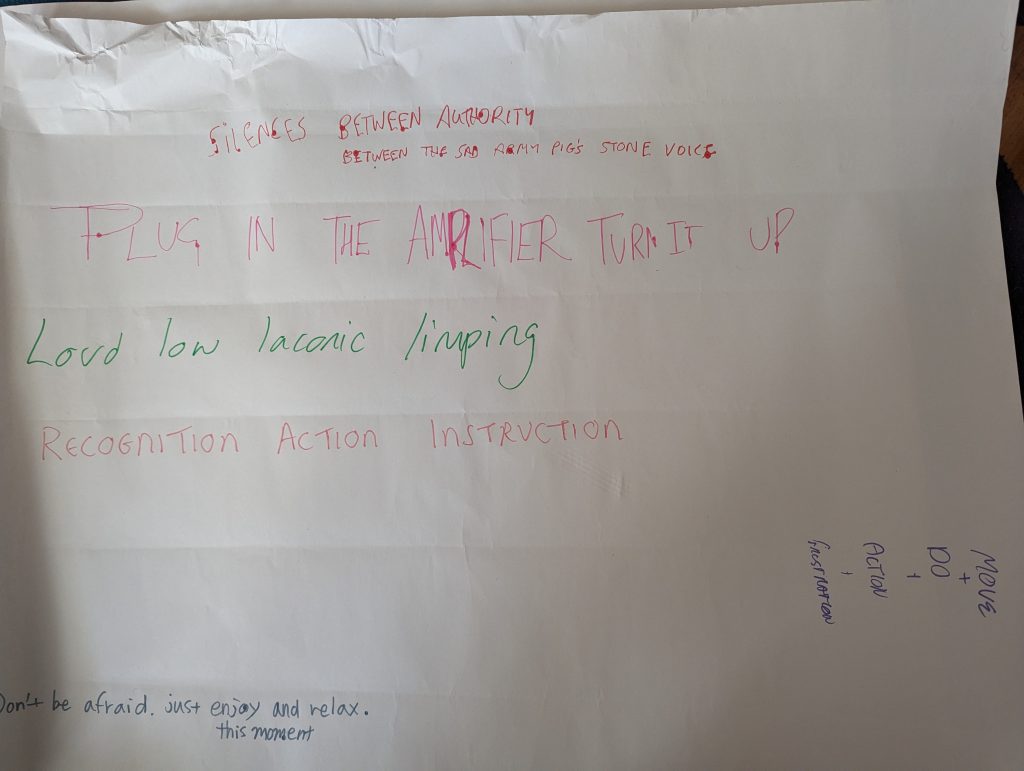 SILENCES BETWEEN AUTHORITY
BETWEEN THE SAD ARMY PIG'S STONE VOICE
PLUG IN THE AMPLIFIER TURN IT UP
Loud low laconic limping
RECOGNITION ACTION INSTRUCTION
MOVE
+
DO
+
ACTION
+
frustration
Don't be afraid. just enjoy and relax.
this moment